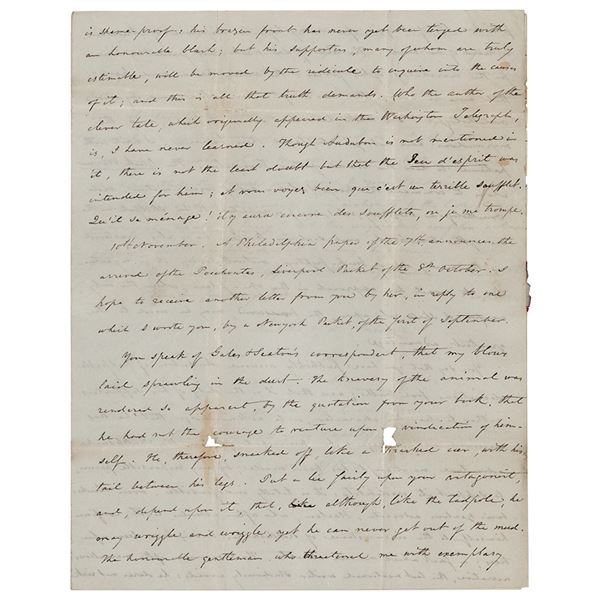 is shame-proof: his brazen front has never yet been tinged with
an honourable blush; but his supporters, many of whom are truly
estimable, will be moved by the ridicule to inquire into the causes
of it; and this is all that truth demands. Who the author of the
clever tale, which originally appeared in the Washington Telegraph,
is, I have never learned. Though Audubon is not mentioned in
it, there is not the least doubt but that the Jeu d'esprit was
intended for him; et vous voyez bien que c'est un terrible soufflet.
Qu'il se ménage! il y aura encore des soufflets, ou je me trompe.
10th November. A Philadelphia paper of the 7th announces the
arrival of the Pocahontas, Liverpool Packet of the 8th October. I
hope to receive another letter from you by her, in reply to one
which I wrote you, by a Newyork Packet, of the first of September.
You speak of Gales & Seaton's correspondent, that my blows
laid sprawling in the dust. The knavery of the animal was
rendered so apparent, by the quotation from your book, that
he had not the courage to venture upon a vindication of him-
self. He, therefore, sneaked off like a cur, with his
tail between his legs. Put a lie fairly upon your antagonist,
and, depend upon it, that, like although, like the tadpole, he
may wriggle and wriggle, yet he can never get out of the mud.
The honourable gentleman who threatened me with exemplary